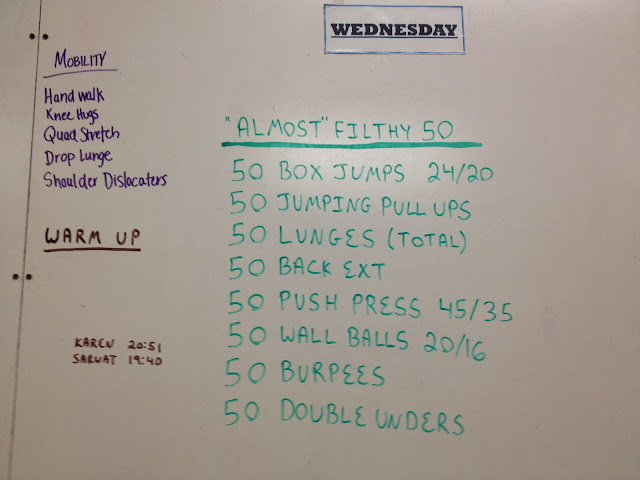 WEDNESDAY
MOBILITY
Hand walk
Knee Hugs
Quad Stretch
Drop Lunge
Shoulder Dislocaters
WARM UP
KAREN 20:51
SARWAT 19:40
"ALMOST" FILTHY 50
50 BOX JUMPS 24/20
50 JUMPING PULL UPS
50 LUNGES (TOTAL)
50 BACK EXT
50 PUSH PRESS 45/35
50 WALL BALLS 20/16
50 BURPEES
50 DOUBLE UNDERS